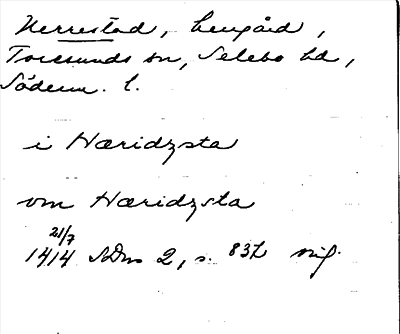 Herrestad, herrgård,
Toresunds sn, Selebo hd,
Söderm. l.
i Hæridzsta
om Hæridzsta
21/7
1414 SDns 2, s. 832